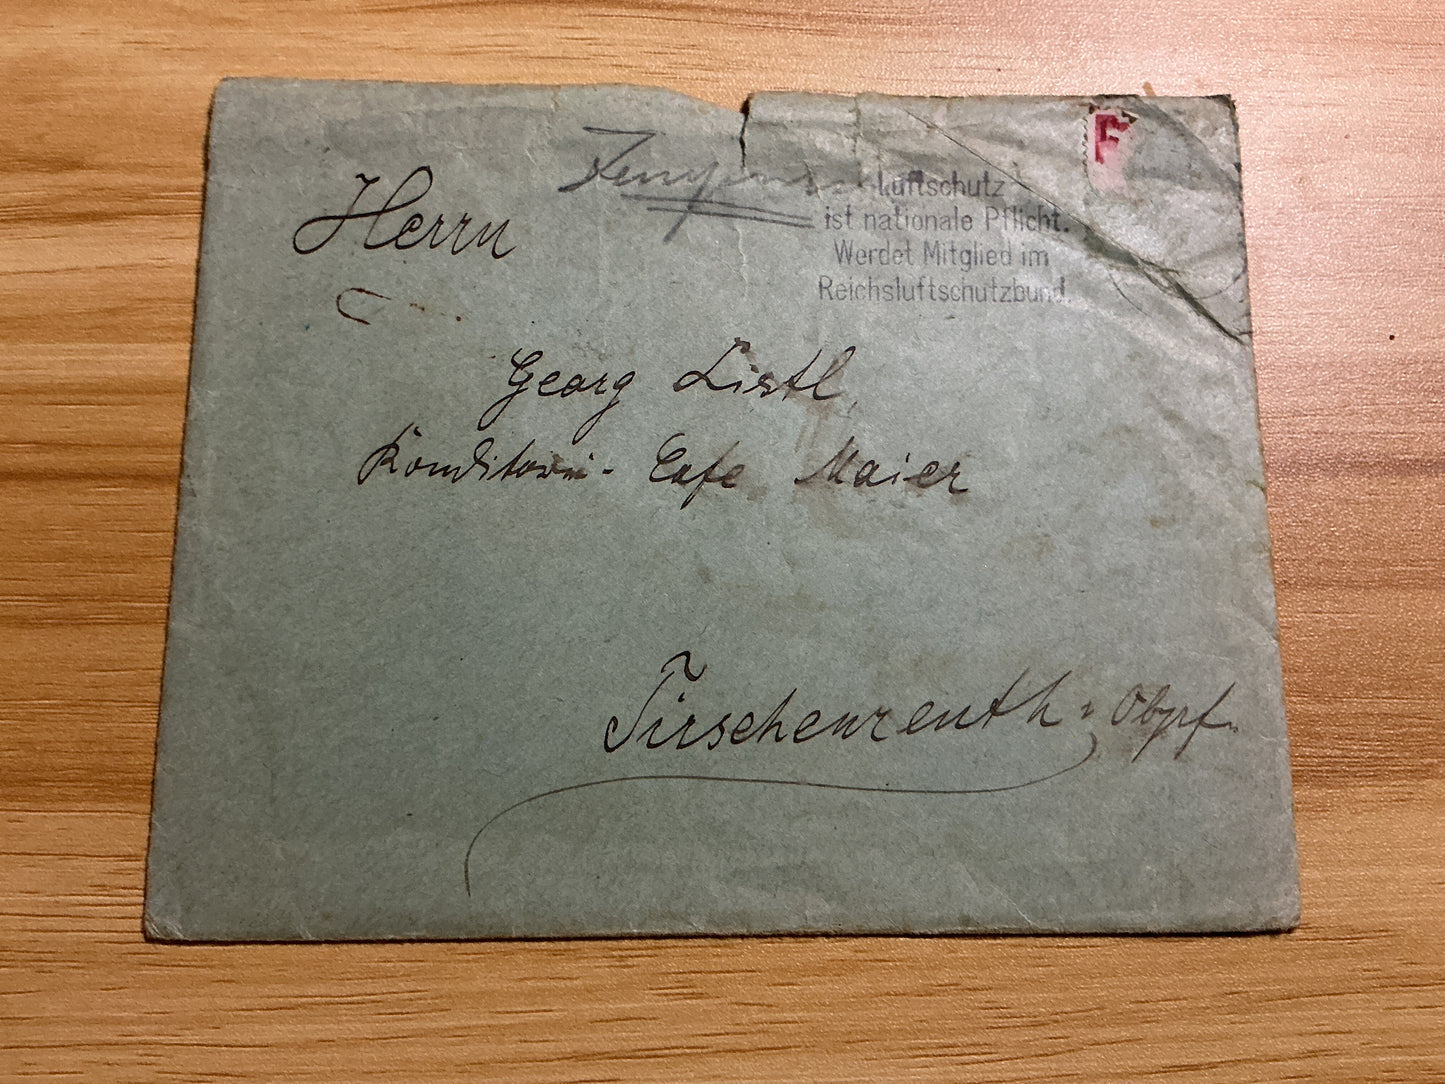 Luftschutz
ist nationale Pflicht.
Werdet Mitglied im
Reichsluftschutzbund.
Herrn
Georg Listl
Konditorei - Cafe Maier
Tirschenreuth, Obpf.